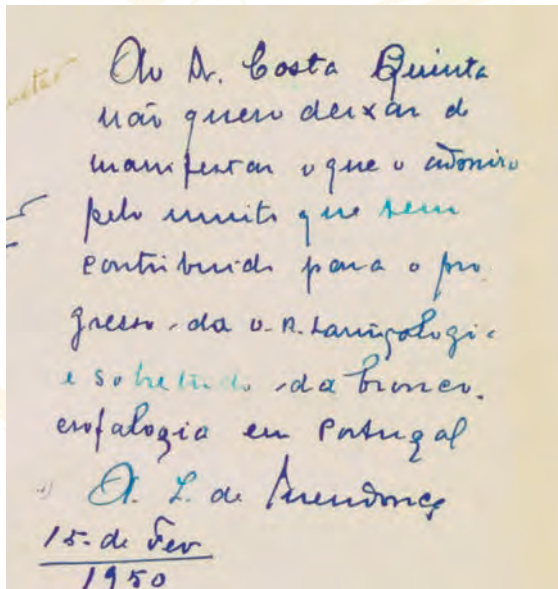 Ao Dr. Costa Quinta
não quero deixar d
manifestar o que o admiro
pelo muito que tem
contribuido para o pro
gresso da O.R. Laringologia
e sobretudo da bronco.
esofalogia em Portugal
A. L. de Mendonça
15 de Fev
1950